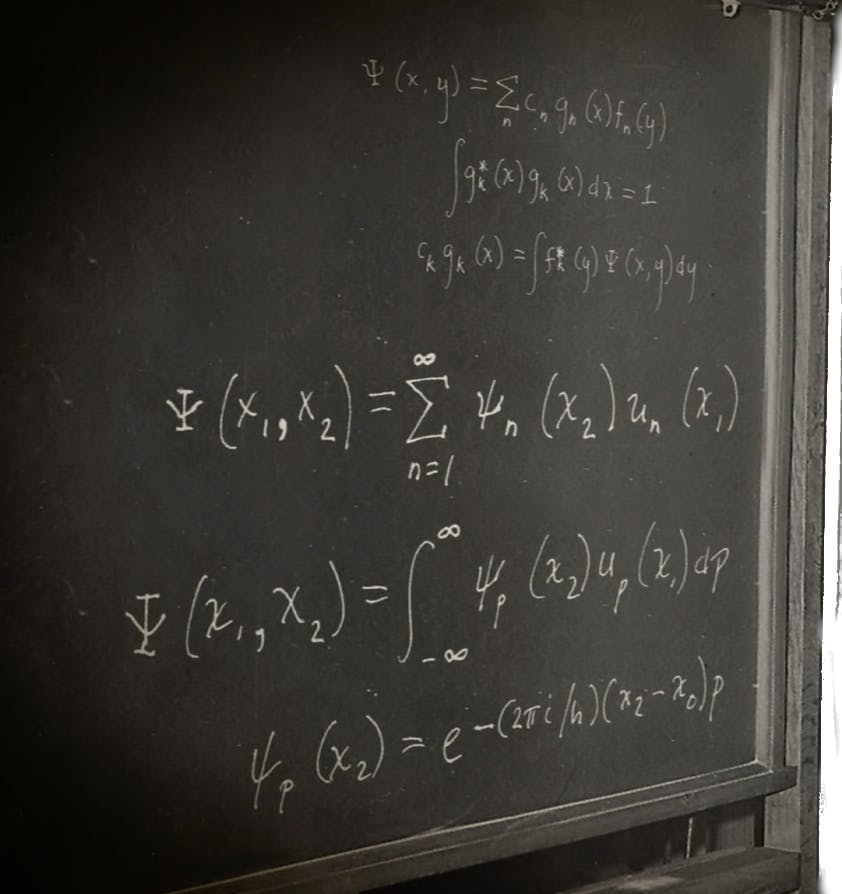 Ψ (x, y) = ∑ₙ cₙ gₙ (x) fₙ (y)
∫ gₖ* (x) gₖ (x) dx = 1
cₖ gₖ (x) = ∫ fₖ* (y) Ψ (x, y) dy
Ψ (x₁, x₂) = ∑_{n=1}^{∞} ψₙ (x₂) uₙ (x₁)
Ψ (x₁, x₂) = ∫_{-∞}^{∞} ψₚ (x₂) uₚ (x₁) dp
ψₚ (x₂) = e^{-(2πi/h)(x₂ - x₀)p}